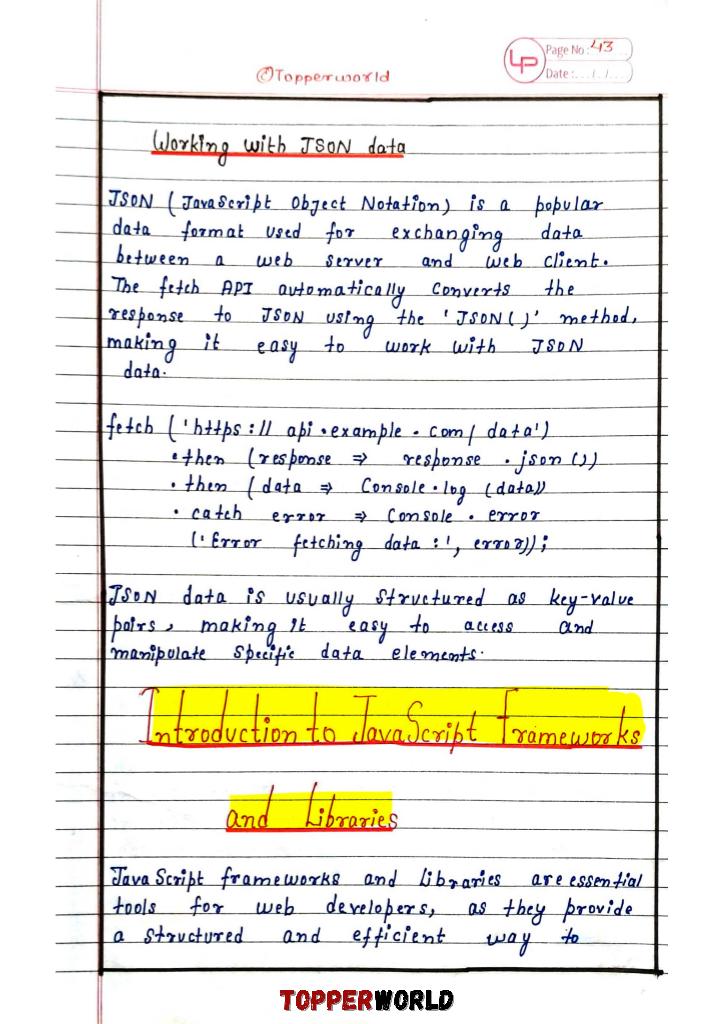 ©Topperworld
LP
Page No : 43
Date : . . . / . / . . .
Working with JSON data
JSON ( JavaScript Object Notation) is a popular
data format used for exchanging data
between a web server and web client.
The fetch API automatically converts the
response to JSON using the 'JSON()' method,
making it easy to work with JSON
data.
fetch ('https:// api.example.com/ data')
.then (response => response .json ())
.then (data => Console.log (data))
. catch error => Console . error
('Error fetching data :', error));
JSON data is usually structured as key-value
pairs, making it easy to access and
manipulate specific data elements.
Introduction to JavaScript frameworks
and Libraries
JavaScript frameworks and Libraries are essential
tools for web developers, as they provide
a structured and efficient way to
TOPPERWORLD